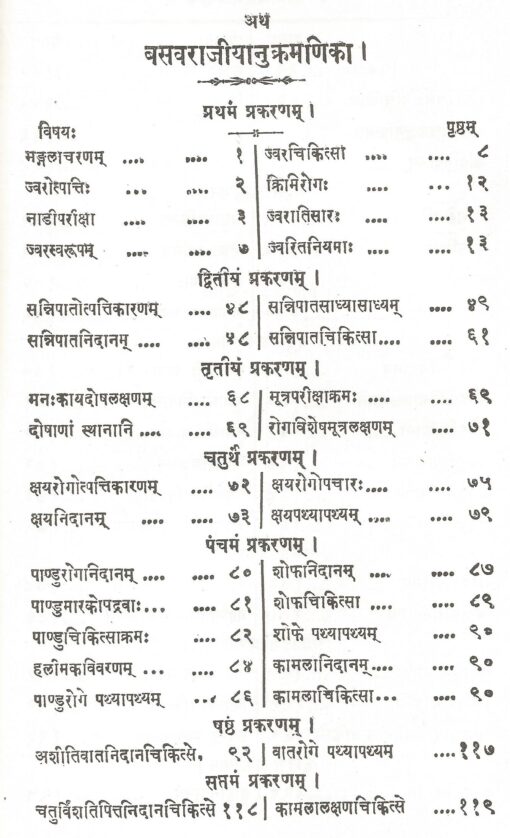 अथ
बसवराजीयानुक्रमणिका ।
प्रथमं प्रकरणम् ।
विषयः पृष्ठम्
मङ्गलाचरणम् .... .... १ ज्वरचिकित्सा .... .... ८
ज्वरोत्पत्तिः ... .... २ क्रिमिरोगः .... ... १२
नाडीपरीक्षा .... .... ३ ज्वरातिसारः .... .... १३
ज्वरस्वरूपम् .... .... ७ ज्वरितनियमाः .... .... १३
द्वितीयं प्रकरणम् ।
सन्निपातोत्पत्तिकारणम् .... ४८ सन्निपातसाध्यासाध्यम् .... ४९
सन्निपातनिदानम् .... .... ५८ सन्निपातचिकित्सा.... .... ६१
तृतीयं प्रकरणम् ।
मनःकायदोषलक्षणम् .... ६८ मूत्रपरीक्षाक्रमः .... .... ६९
दोषाणां स्थानानि .... .... ६९ रोगविशेषमूत्रलक्षणम् .... ७१
चतुर्थं प्रकरणम् ।
क्षयरोगोत्पत्तिकारणम् .... ७२ क्षयरोगोपचारः.... .... ७५
क्षयनिदानम् .... .... ७३ क्षयपथ्यापथ्यम् .... .... ७९
पंचमं प्रकरणम् ।
पाण्डुरोगनिदानम् .... .... ८० शोफनिदानम् .... .... ८७
पाण्डुमारकोपद्रवाः... .... ८१ शोफचिकित्सा .... .... ८९
पाण्डुचिकित्साक्रमः .... ८२ शोफे पथ्यापथ्यम् .... ९०
हलीमकविवरणम् ... .... ८४ कामलानिदानम्.... .... ९०
पाण्डुरोगे पथ्यापथ्यम् ... ८६ कामलाचिकित्सा... .... ९०
षष्ठं प्रकरणम् ।
अशीतिवातनिदानचिकित्से. ९२ वातरोगे पथ्यापथ्यम ....११७
सप्तमं प्रकरणम् ।
चतुर्विंशतिपित्तनिदानचिकित्से ११८ कामलालक्षणचिकित्से ....११९